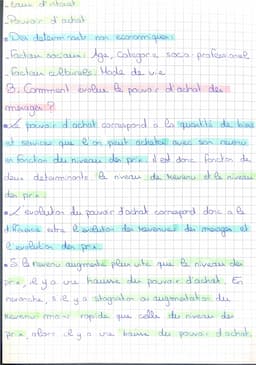 - taux d'intérêt
- Pouvoir d'achat
• Des déterminants non économiques :
- Facteurs sociaux : Age, Catégorie socio-professionnel
- Facteurs culturels : Mode de vie
B. Comment évolue le pouvoir d'achat des
ménages ?
• Le pouvoir d'achat correspond à la quantité de biens
et services que l'on peut acheter avec son revenu
en fonction du niveau des prix. Il est donc fonction de
deux déterminants : le niveau de revenu et le niveau
des prix.
• L'évolution du pouvoir d'achat correspond donc à la
différence entre l'évolution des revenus des ménages et
l'évolution des prix.
• Si le revenu augmente plus vite que le niveau des
prix, il y a une hausse du pouvoir d'achat. En
revanche, s'il y a stagnation ou augmentation du
revenu moins rapide que celle du niveau des
prix, alors il y a une baisse du pouvoir d'achat.